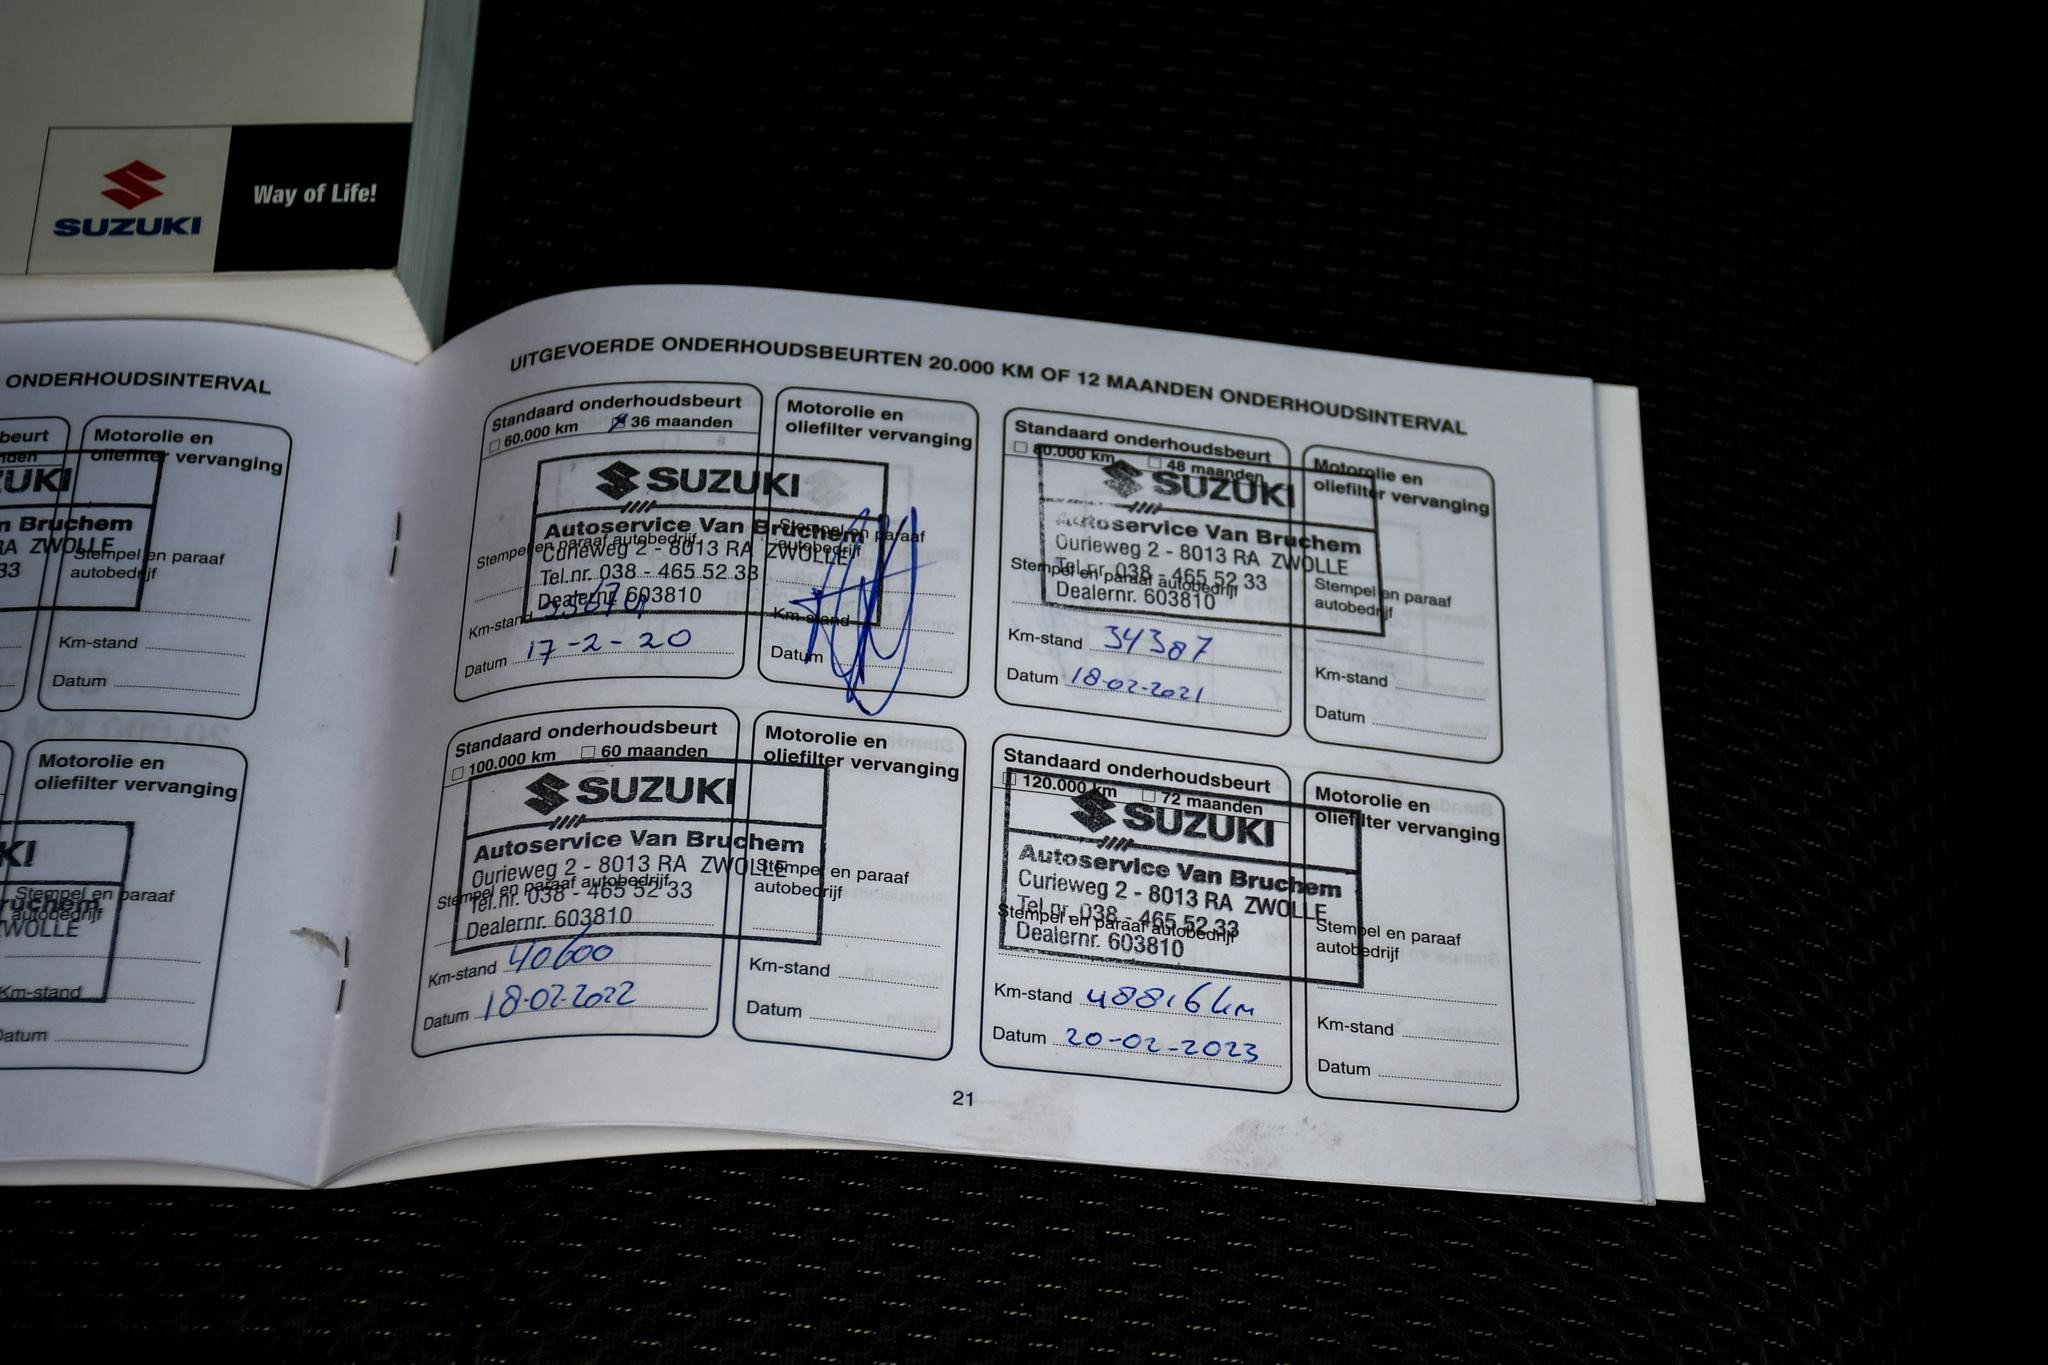 SUZUKI
Way of Life!
ONDERHOUDSINTERVAL
beurt
Motorolie en
oliefilter vervanging
Bruchem
RA ZWOLLE
33
Stempel en paraaf
autobedrijf
Km-stand
Datum
Motorolie en
oliefilter vervanging
Stempel en paraaf
autobedrijf
Km-stand
Datum
UITGEVOERDE ONDERHOUDSBEURTEN 20.000 KM OF 12 MAANDEN ONDERHOUDSINTERVAL
Standaard onderhoudsbeurt
60.000 km 36 maanden
SUZUKI
Autoservice Van Bruchem
Curieweg 2 - 8013 RA ZWOLLE
Stempel en paraaf autobedrijf
Tel.nr. 038 - 465 52 33
Dealernr. 603810
Km-stand
Datum 17-2-20
Motorolie en
oliefilter vervanging
Stempel en paraaf
autobedrijf
Km-stand
Datum
Standaard onderhoudsbeurt
80.000 km 48 maanden
SUZUKI
Autoservice Van Bruchem
Curieweg 2 - 8013 RA ZWOLLE
Stempel en paraaf autobedrijf
Tel.nr. 038 - 465 52 33
Dealernr. 603810
Km-stand 34387
Datum 18-02-2021
Motorolie en
oliefilter vervanging
Stempel en paraaf
autobedrijf
Km-stand
Datum
Standaard onderhoudsbeurt
100.000 km 60 maanden
SUZUKI
Autoservice Van Bruchem
Curieweg 2 - 8013 RA ZWOLLE
Stempel en paraaf autobedrijf
Tel.nr. 038 - 465 52 33
Dealernr. 603810
Km-stand 40600
Datum 18-02-2022
Motorolie en
oliefilter vervanging
Stempel en paraaf
autobedrijf
Km-stand
Datum
Standaard onderhoudsbeurt
120.000 km 72 maanden
SUZUKI
Autoservice Van Bruchem
Curieweg 2 - 8013 RA ZWOLLE
Tel.nr. 038 - 465 52 33
Stempel en paraaf autobedrijf
Dealernr. 603810
Km-stand 48816 km
Datum 20-02-2023
Motorolie en
oliefilter vervanging
Stempel en paraaf
autobedrijf
Km-stand
Datum
21